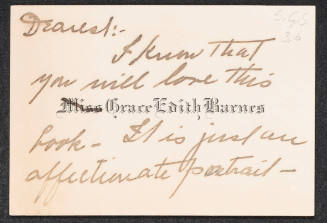 Dearest:-
I know that
you will love this
Miss Grace Edith Barnes
book - It is just an
affectionate portrait -